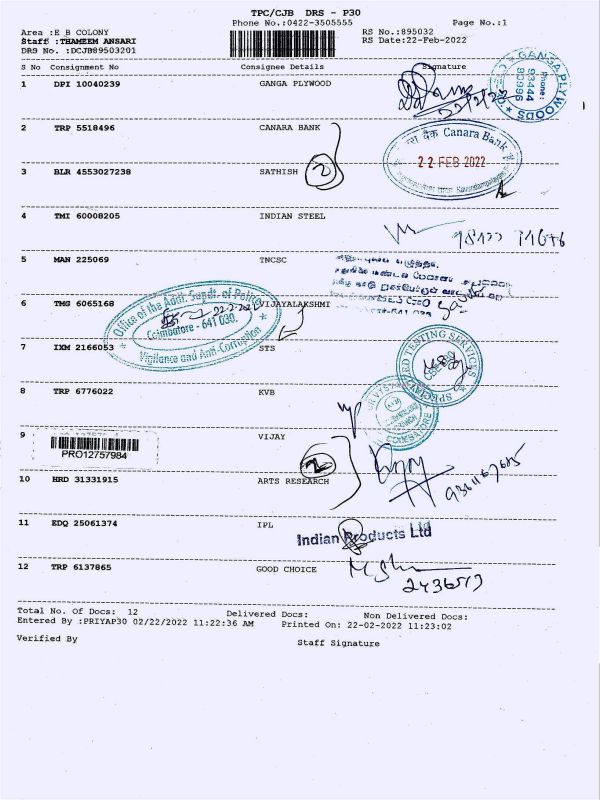 TPC/CJB DRS - P30
Phone No.:0422-3505555
Page No.:1
Area :E B COLONY
RS No.:895032
Staff :THAMEEM ANSARI
RS Date:22-Feb-2022
DRG No. :DCJB89503201
S No Consignment No Consignee Details Signature
1 DPI 10040239 GANGA PLYWOOD
GANGA PLYWOODS
Phone:
93444
93996
2 TRP 5518496 CANARA BANK
Canara Bank
22 FEB 2022
3 BLR 4553027238 SATHISH
2
4 TMI 60008205 INDIAN STEEL
5 MAN 225069 TNCSC
6 TMG 6065168 VIJAYALAKSHMI
Office of the Addl. Supdt. of Police
Coimbatore - 641 030.
Vigilance and Anti-Corruption
7 IXM 2166053 STS
SPECIALIZED TESTING SERVICES
8 TRP 6776022 KVB
COIMBATORE
9 PRO12757984 VIJAY
2
10 HRD 31331915 ARTS RESEARCH
11 EDQ 25061374 IPL
Indian Products Ltd
12 TRP 6137865 GOOD CHOICE
Total No. Of Docs: 12 Delivered Docs: Non Delivered Docs:
Entered By :PRIYAP30 02/22/2022 11:22:36 AM Printed On: 22-02-2022 11:23:02
Verified By Staff Signature